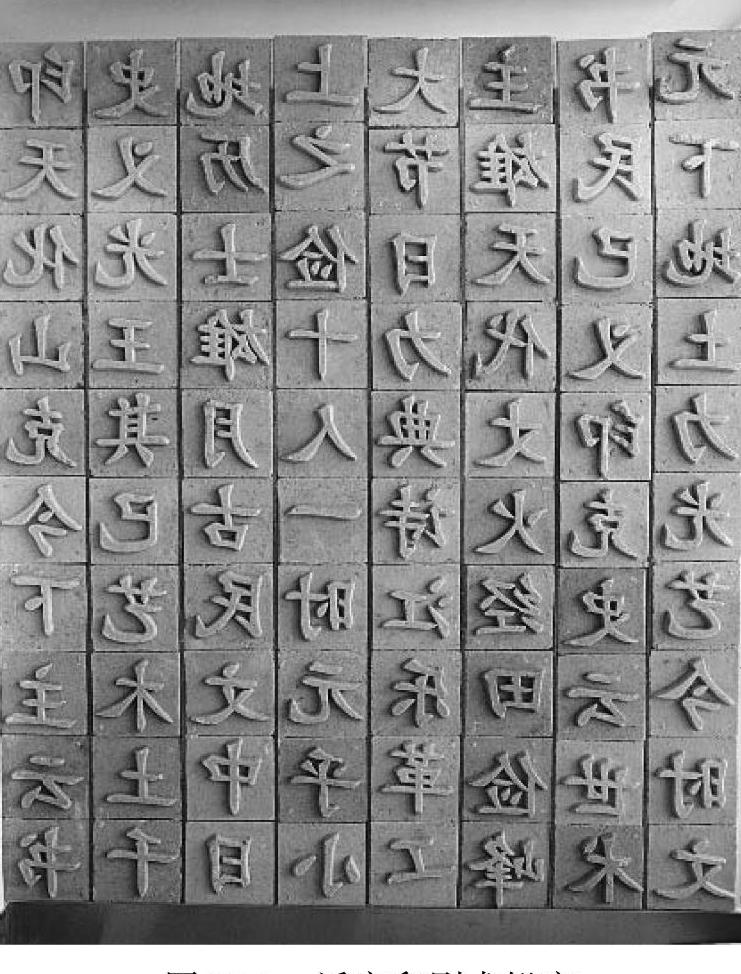 印史地上大主书元
天义历之节雄民下
化光士俭日天已地
山王雄十力代义土
克其月人典丈印力
今已古一诗火克光
下艺民时江经史艺
主木文元乐田云今
云土中乎革俭世时
书千日小工峰木文